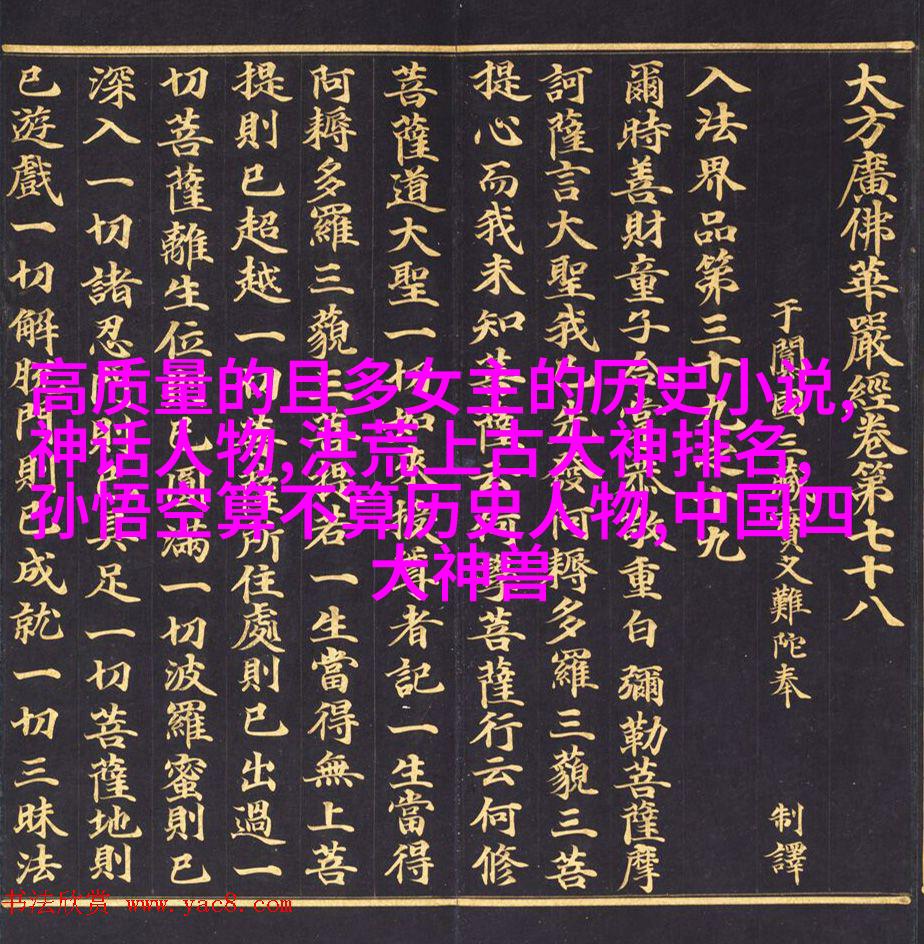 大方廣佛華嚴經卷第七十八
于闐國三藏實叉難陀奉 制譯
入法界品第三十九之十九
爾時善財童子合掌恭敬重白彌勒菩薩摩
訶薩言大聖我已先發阿耨多羅三藐三菩
提心而我未知菩薩云何學菩薩行云何修
菩薩道大聖一切如來授尊者記一生當得
阿耨多羅三藐三菩提若一生當得無上菩
提則已超越一切菩薩所住處則已出過一
切菩薩離生位則已圓滿一切波羅蜜則已
深入一切諸忍門則已具足一切菩薩地則
已遊戲一切解脫門則已成就一切三昧法
高质量的且多女主的历史小说,
神话人物,洪荒上古大神排名,
孙悟空算不算历史人物,中国四
大神兽
书法欣赏 www.yac8.com